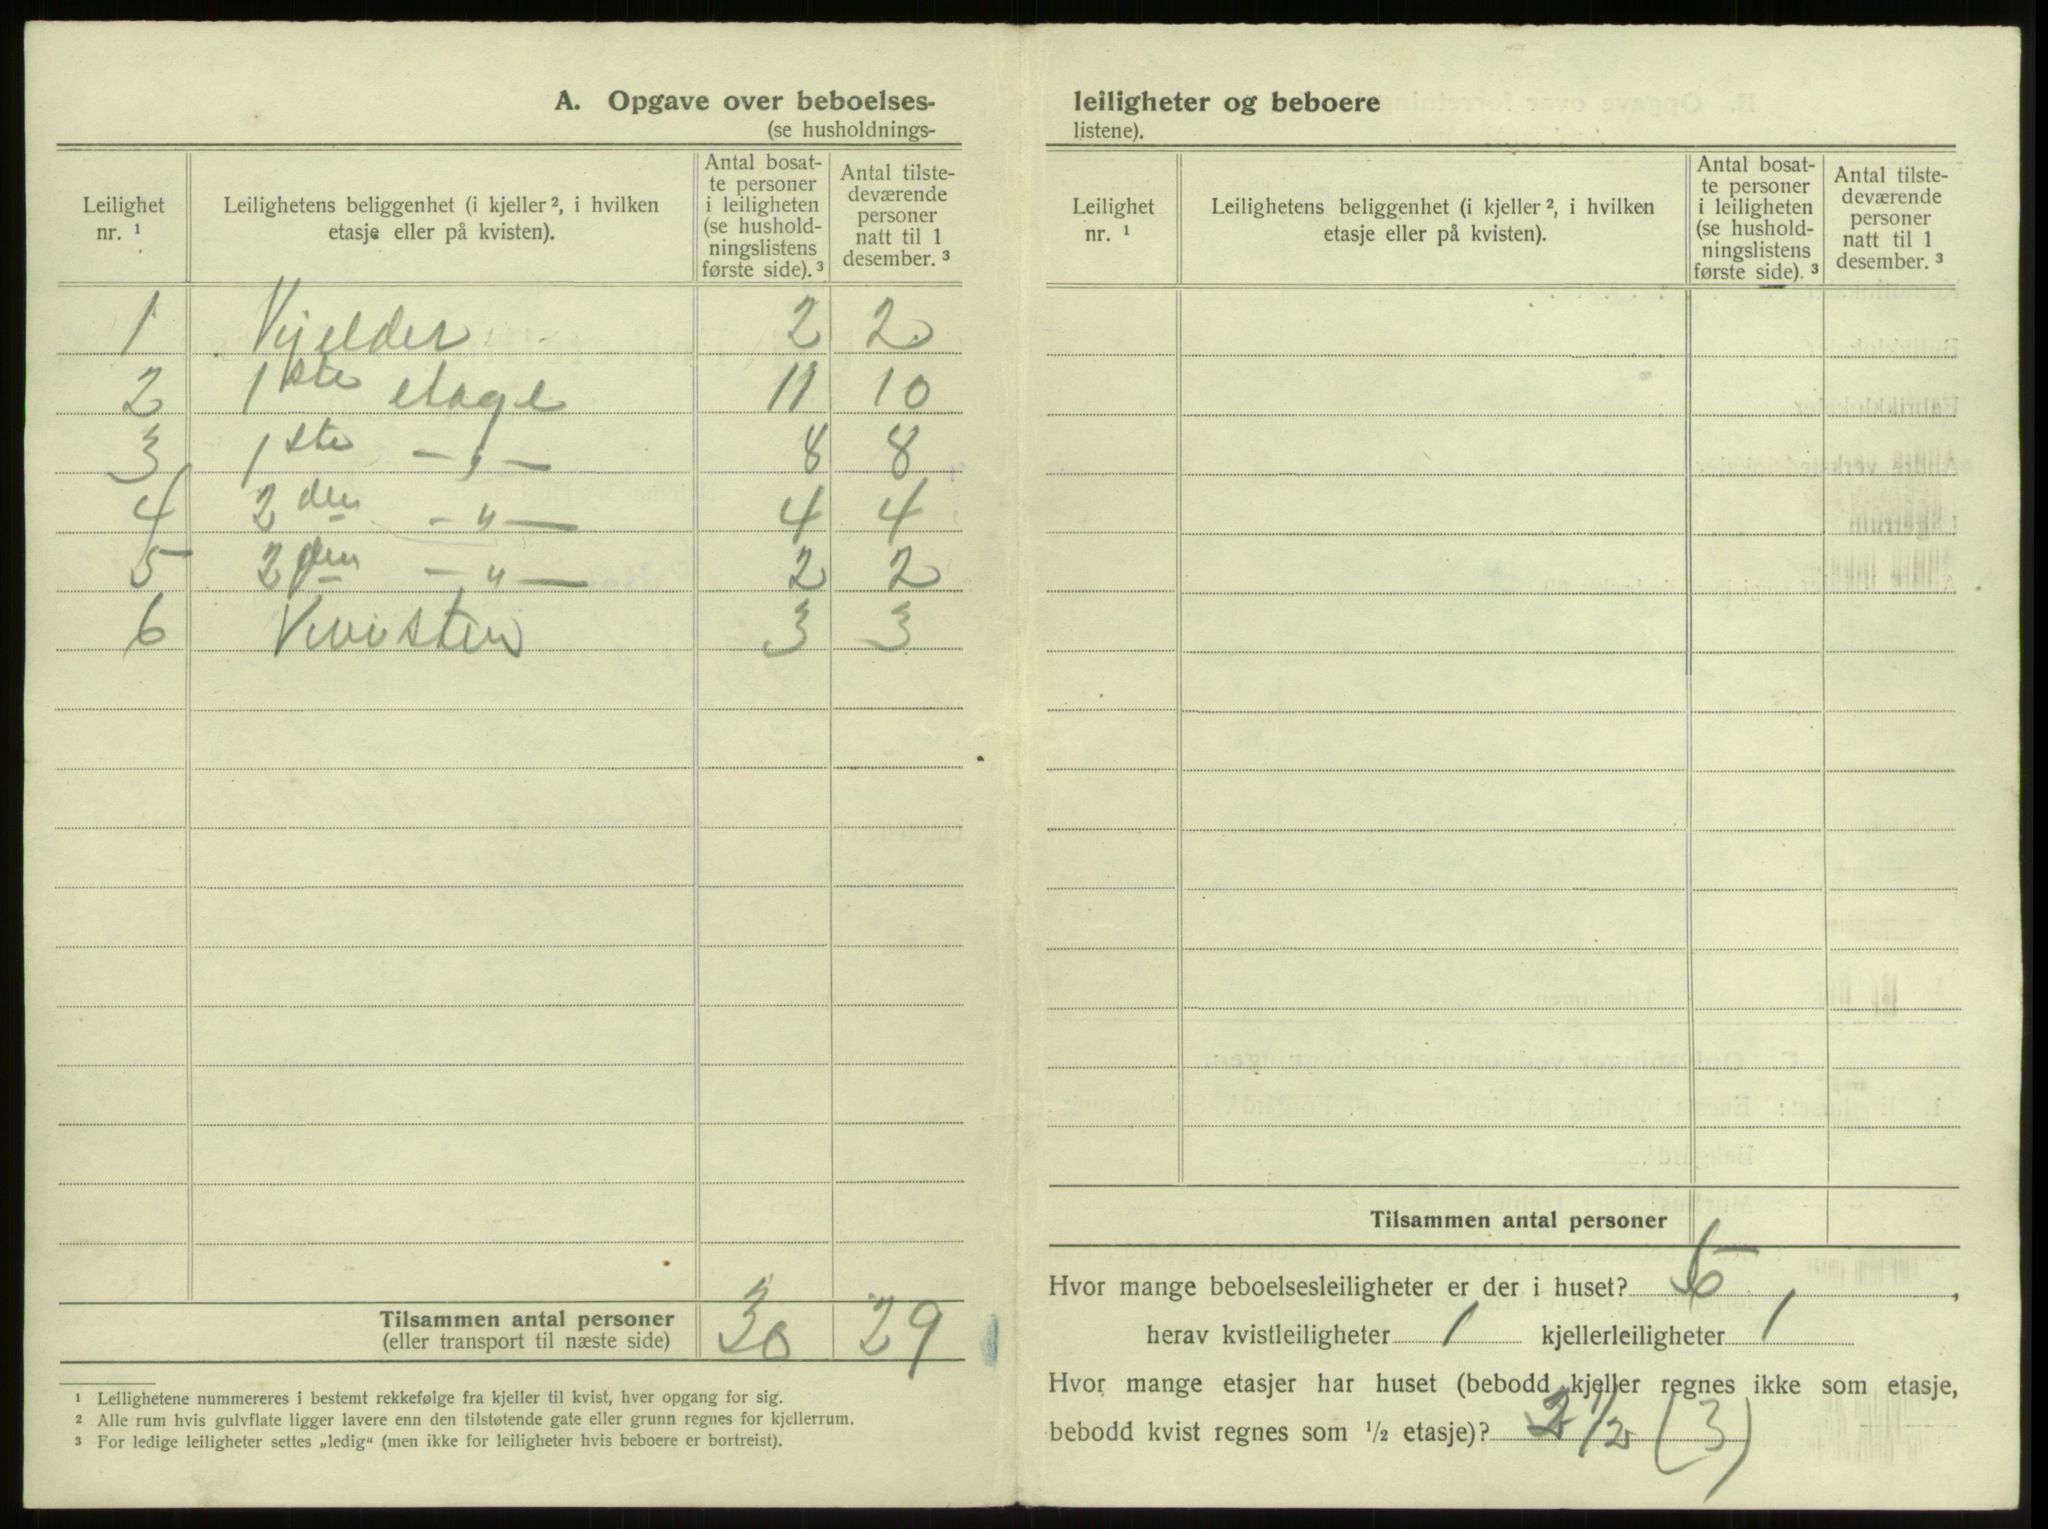 A. Opgave over beboelses-
(se husholdnings-
Leilighet nr. ¹
Leilighetens beliggenhet (i kjeller ², i hvilken etasje eller på kvisten).
Antal bosat-
te personer
i leiligheten
(se hushold-
ningslistens
første side). ³
Antal tilste-
deværende
personer
natt til 1
desember. ³
1 Kjelder 2 2
2 1ste etage 11 10
3 1ste — „ — 8 8
4 2den — „ — 4 4
5 2den — „ — 2 2
6 Kvisten 3 3
Tilsammen antal personer 30 29
(eller transport til næste side)
¹ Leilighetene nummereres i bestemt rekkefølge fra kjeller til kvist, hver opgang for sig.
² Alle rum hvis gulvflate ligger lavere enn den tilstøtende gate eller grunn regnes for kjellerrum.
³ For ledige leiligheter settes „ledig“ (men ikke for leiligheter hvis beboere er bortreist).
leiligheter og beboere
listene).
Leilighet nr. ¹
Leilighetens beliggenhet (i kjeller ², i hvilken etasje eller på kvisten).
Antal bosat-
te personer
i leiligheten
(se hushold-
ningslistens
første side). ³
Antal tilste-
deværende
personer
natt til 1
desember. ³
Tilsammen antal personer
Hvor mange beboelsesleiligheter er der i huset? 6,
herav kvistleiligheter 1 kjellerleiligheter 1
Hvor mange etasjer har huset (bebodd kjeller regnes ikke som etasje,
bebodd kvist regnes som ½ etasje)? 2 1/2 (3)